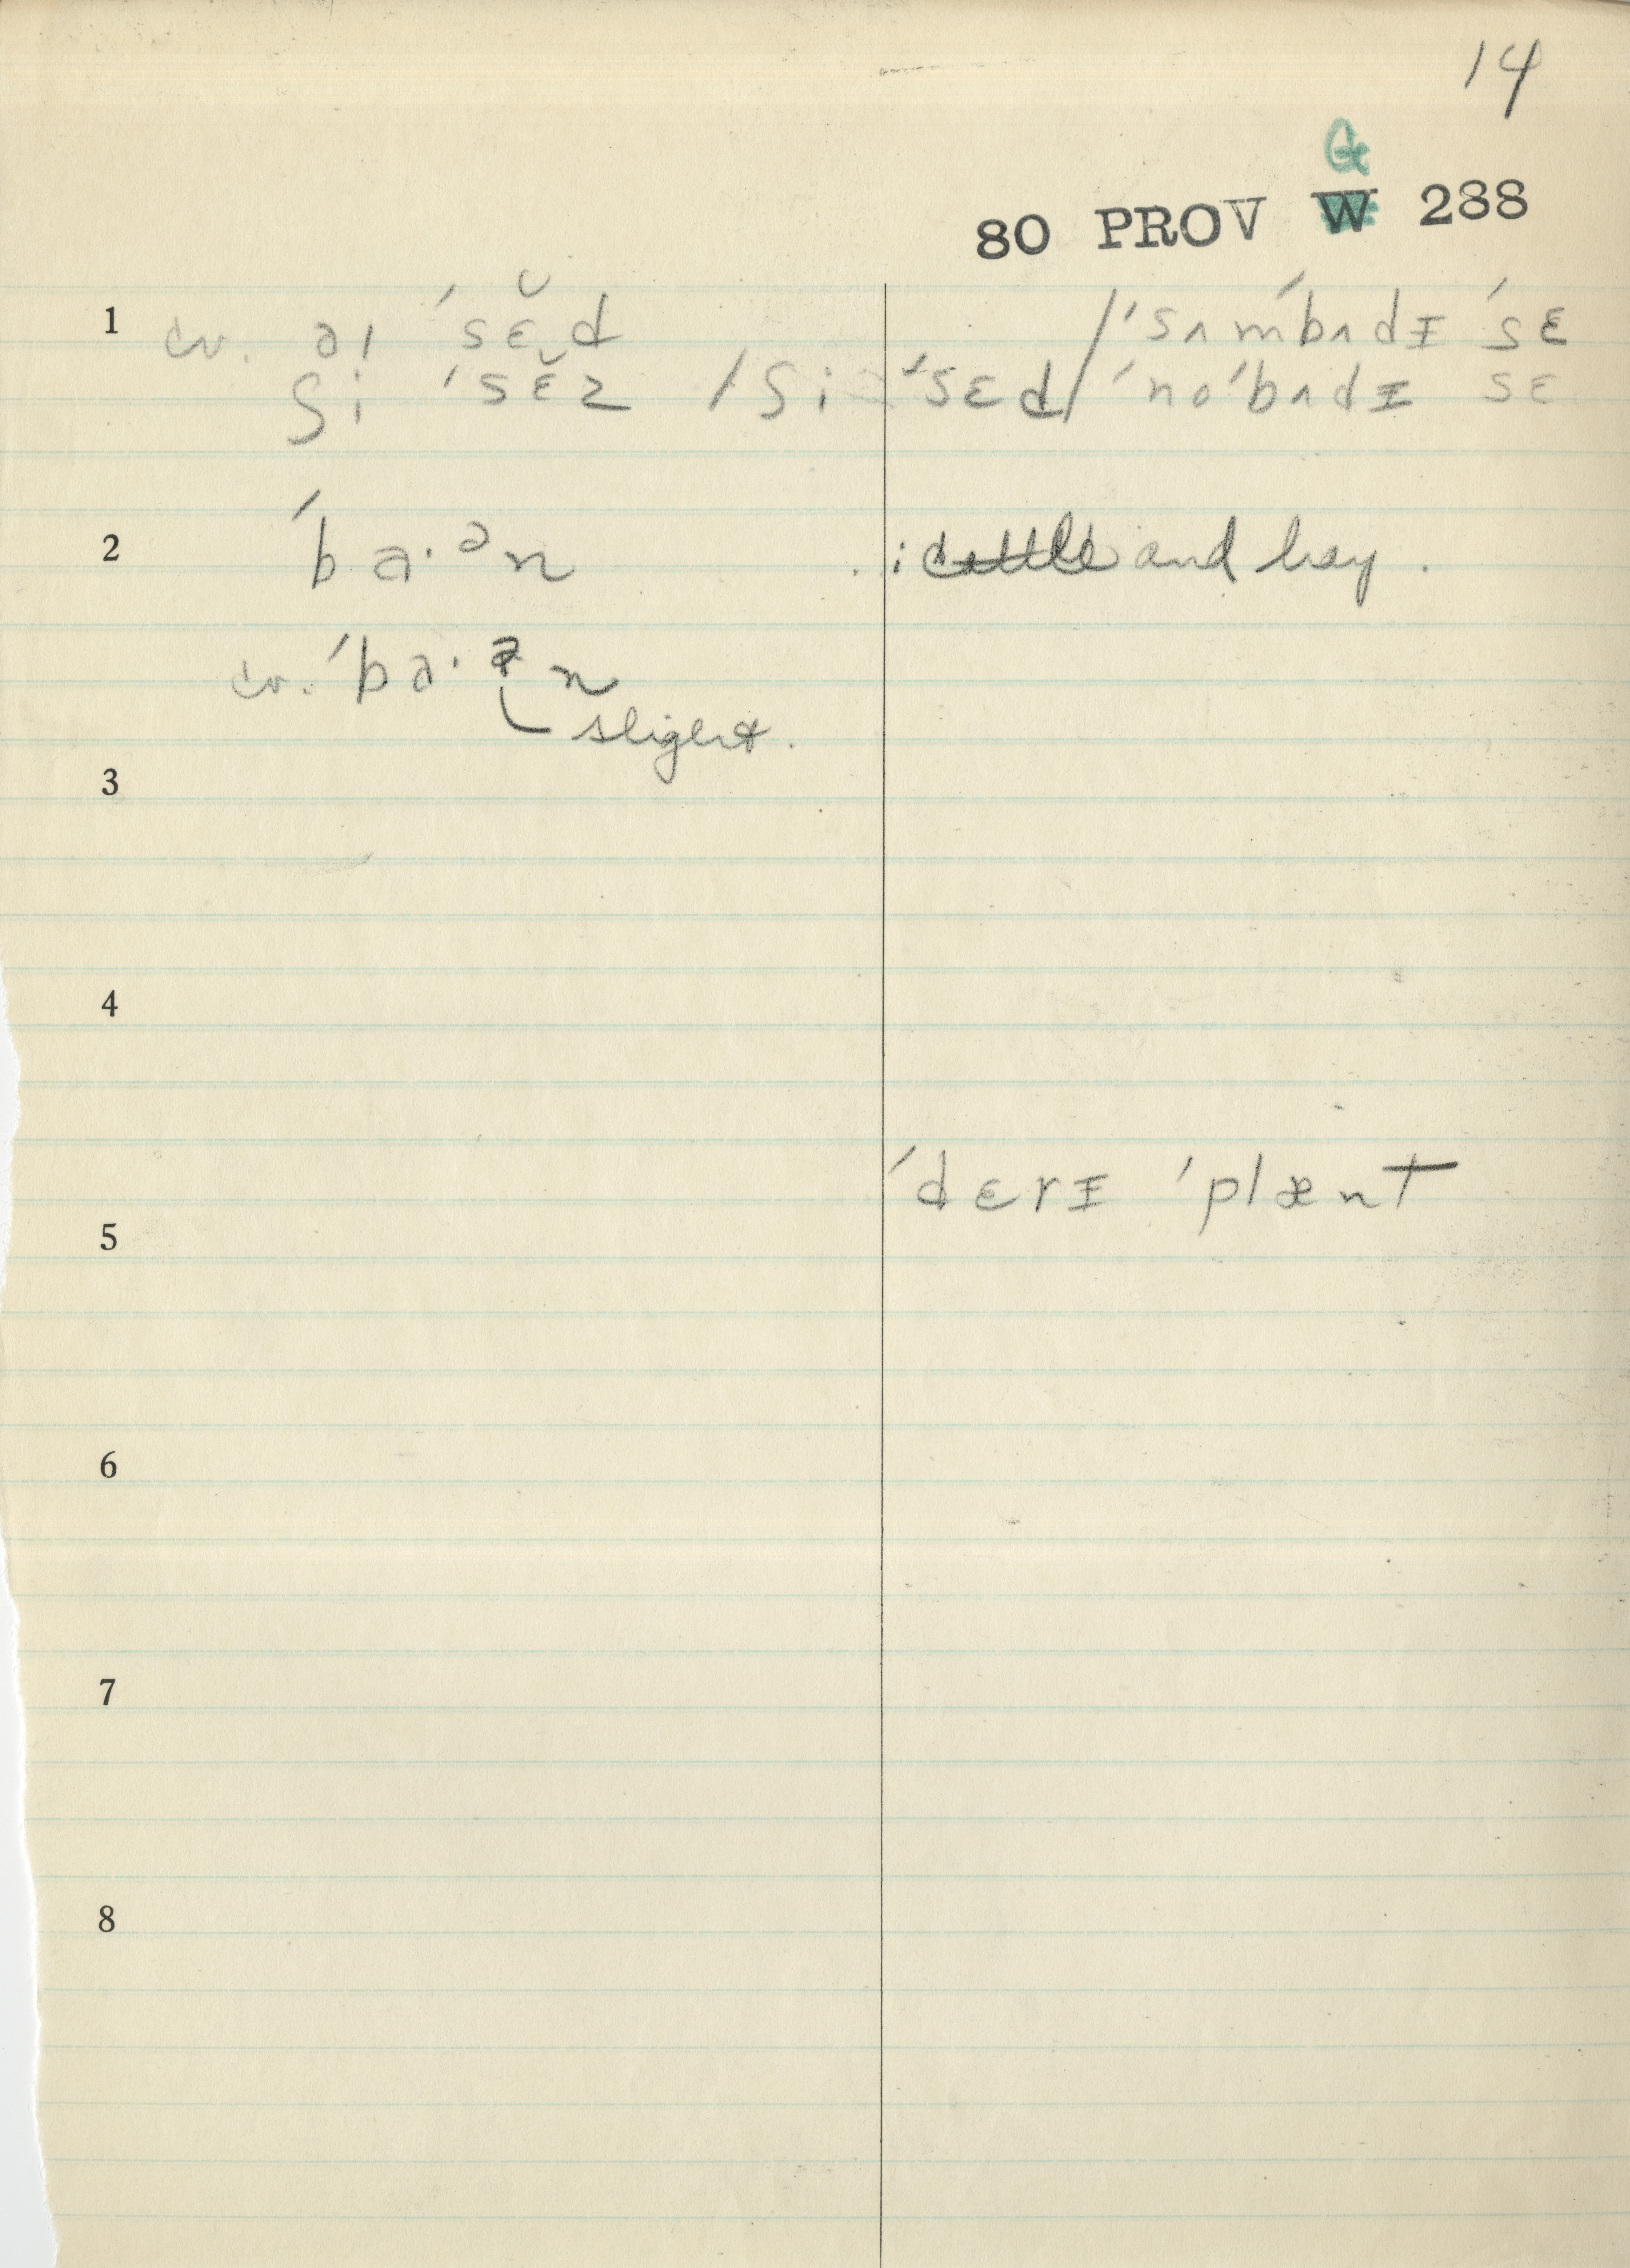 14
G
80 PROV W 288
1 cv. aɪ ˈsɛ̆d /ˈsʌmˈbʌdɪ ˈsɛ
ʃi ˈsɛ̆z /ʃi ˈsɛd/ ˈnoˈbʌdɪ sɛ
2 ˈba·ᵊn : cattle and hay.
cv. ˈba· n
slight.
3
4
ˈdɛrɪ ˈplænt
5
6
7
8